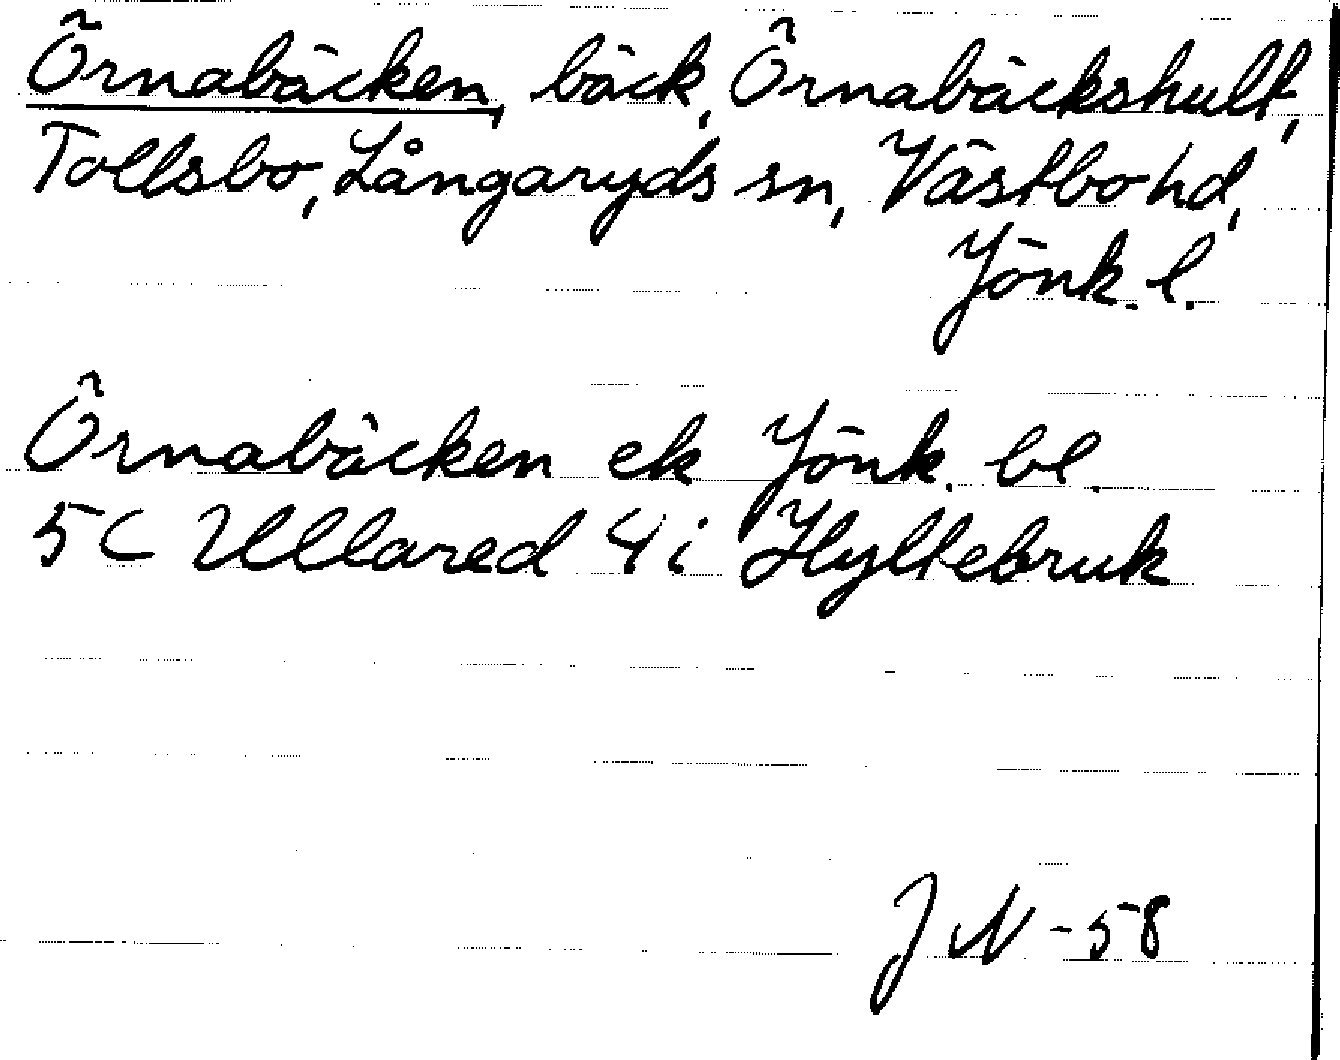 Örnabäcken, bäck, Örnabäckshult,
Tollsbo, Långaryds sn, Västbo hd,
Jönk. l.
Örnabäcken ek Jönk. bl.
5C Ullared 4i Hyltebruk
JN -58